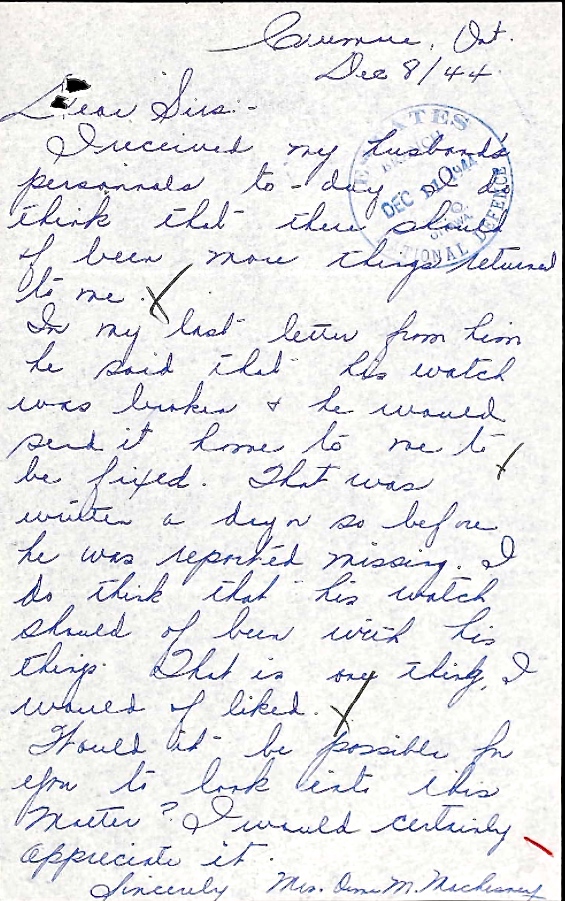 Crumore, Ont.
Dec 8/44.
Dear Sirs:-
I received my husband's
personnals to-day and I do
think that there should
of been more things returned
to me.
In my last letter from him
he said that his watch
was broken & he would
send it home to me to
be fixed. That was
written a day or so before
he was reported missing. I
do think that his watch
should of been with his
things. That is one thing, I
would of liked.
Would it be possible for
you to look into this
Matter? I would certainly
appreciate it.
Sincerely Mrs. M. Machesney
ESTATES
BRANCH
DEC 10 1944
OTTAWA
NATIONAL DEFENCE